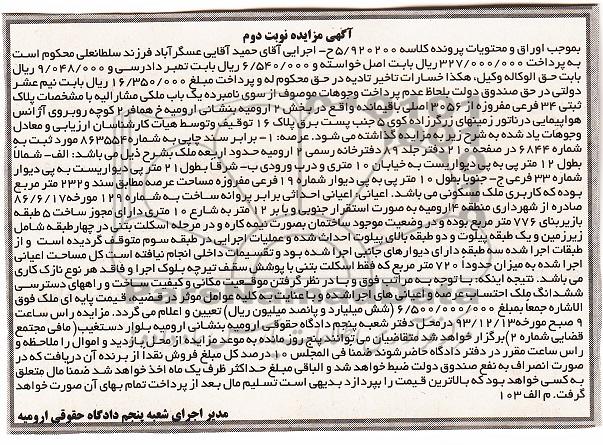 آگهی مزایده نوبت دوم
بموجب اوراق و محتویات پرونده کلاسه ۵/۹۲۰۲۰۰ح- اجرایی آقای حمید آقایی عسگرآباد فرزند سلطانعلی محکوم است
به پرداخت ۳۲۷/۰۰۰/۰۰۰ ریال بابت اصل خواسته و ۶/۵۴۰/۰۰۰ ریال بابت تمبر دادرسی و ۹/۰۴۸/۰۰۰ ریال
بابت حق الوکاله وکیل، هکذا خسارات تاخیر تادیه در حق محکوم له و پرداخت مبلغ ۱۶/۳۵۰/۰۰۰ ریال بابت نیم عشر
دولتی در حق صندوق دولت بلحاظ عدم پرداخت وجوهات موصوف از سوی نامبرده یک باب ملکی مشارالیه با مشخصات پلاک
ثبتی ۳۴ فرعی مفروزه از ۳۵۶ اصلی باقیمانده واقع در بخش ۲ ارومیه بنشانی ارومیه خ همافر ۲ کوچه روبروی آژانس
هواپیمایی درناتور زمینهای زرگرزاده کوی ۵ جنب پست برق پلاک ۱۶ توقیف و توسط هیات کارشناسان ارزیابی و معادل
وجوهات یاد شده به شرح زیر به مزایده گذاشته می شود. عرصه: ۱- برابر سند چاپی به شماره ۸۶۳۵۵۴ مورد ثبت به
شماره ۶۸۴۴ در صفحه ۲۱۰ دفتر جلد ۴۳ دفترخانه رسمی ۲ ارومیه حدود اربعه ملک بشرح ذیل می باشد: الف- شمالاً
بطول ۱۲ متر پی به پی دیواریست به خیابان ۱۰ متری و درب ورودی ب- شرقاً بطول ۲۱ متر پی دیواریست به پی دیوار
شماره ۳۳ فرعی ج- جنوباً بطول ۱۰ متر پی به پی دیوار شماره ۱۹ فرعی مفروزه مساحت عرصه مطابق سند ۲۳۲ متر مربع
بوده که کاربری ملک مسکونی می باشد. اعیانی: اعیانی احداثی برابر پروانه ساخت به شماره ۱۲۰ مورخه ۸۶/۶/۱۷
صادره از شهرداری منطقه ۴ ارومیه به صورت استقرار جنوبی و با بر ۱۲ متر به شارع ۱۰ متری دارای مجوز ساخت ۵ طبقه
با زیربنای ۷۷۶ متر مربع بوده و در وضعیت موجود ساختمان بصورت نیمه کاره و در مرحله اسکلت بتنی در چهار طبقه شامل
زیرزمین و یک طبقه پیلوت و دو طبقه بالای پیلوت احداث شده و عملیات اجرایی در طبقه سوم متوقف گردیده است و از
طبقات اجرا شده سه طبقه دارای دیوارهای جانبی اجرا شده بود و تقسیمات داخلی انجام نیافته است کل مساحت اعیانی
اجرا شده به میزان حدوداً ۷۲۰ متر مربع که فقط اسکلت بتنی با پوشش سقف تیرچه بلوک اجرا و فاقد هر نوع نازک کاری
می باشد. نتیجه اینکه: با توجه به مراتب فوق و با در نظر گرفتن موقعیت مکانی و کیفیت ساخت و راههای دسترسی
ششدانگ ملک احتساب عرصه و اعیانی های اجرا شده و با عنایت به کلیه عوامل موثر در قضیه قیمت پایه ای ملک فوق
الاشاره جمعاً بمبلغ ۶/۵۰۰/۰۰۰/۰۰۰ (شش میلیارد و پانصد میلیون ریال) تعیین و اعلام می گردد. مزایده راس ساعت
۹ صبح مورخه ۹۳/۱۲/۱۳ در محل دفتر شعبه پنجم دادگاه حقوقی ارومیه بنشانی ارومیه بلوار دستغیب( مافی مجتمع
قضایی شماره ۲) برگزار خواهد شد متقاضیان می توانند پنج روز مانده به موعد مزایده از محل بازدید و اموال را ملاحظه و
راس ساعت مقرر در دفتر دادگاه حاضر شوند ضمناً فی المجلس ۱۰ درصد کل مبلغ فروش نقداً از برنده آن دریافت که در
صورت انصراف به نفع صندوق دولت ضبط خواهد شد و الباقی مبلغ حداکثر ظرف یک ماه اخذ خواهد شد ضمناً مال متعلق
به کسی خواهد بود که بالاترین قیمت را بپردازد بدیهی است تسلیم مال بعد از پرداخت تمام بهای آن صورت خواهد
گرفت. م الف ۱۰۳
مدیر اجرای شعبه پنجم دادگاه حقوقی ارومیه